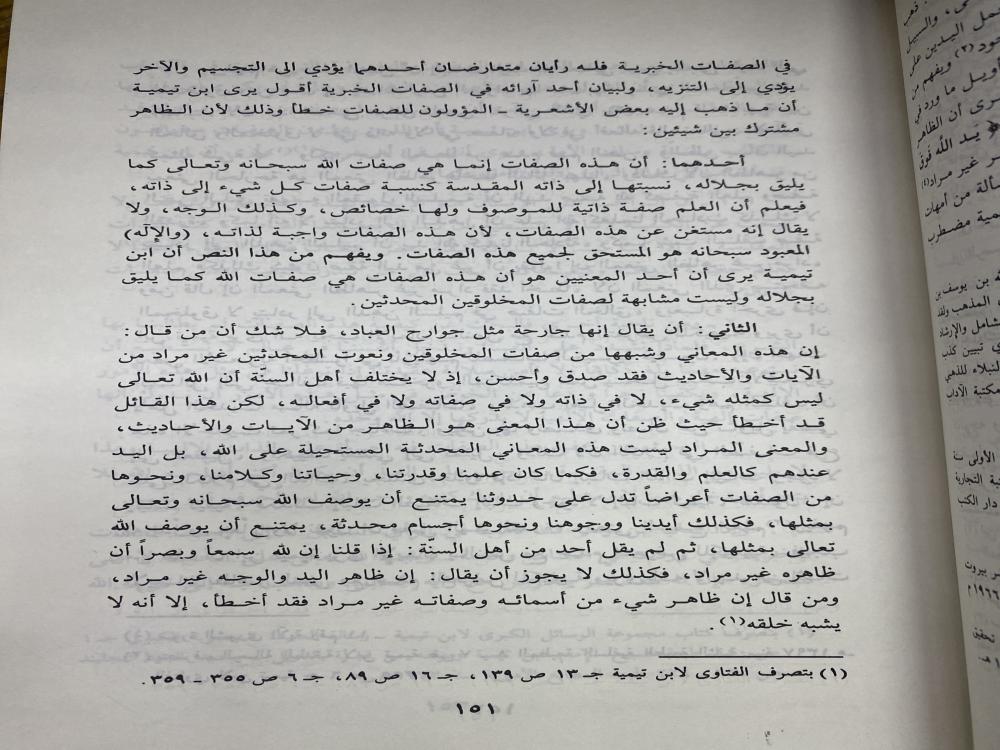 في الصفات الخبرية فله رأيان متعارضان أحدهما يؤدي الى التجسيم والآخر
يؤدي إلى التنزيه، ولبيان أحد آرائه في الصفات الخبرية أقول يرى ابن تيمية
أن ما ذهب إليه بعض الأشعرية - المؤولون للصفات خطأ وذلك لأن الظاهر
مشترك بين شيئين:
أحدهما: أن هذه الصفات إنما هي صفات الله سبحانه وتعالى كما
يليق بجلاله، نسبتها إلى ذاته المقدسة كنسبة صفات كل شيء إلى ذاته،
فيعلم أن العلم صفة ذاتية للموصوف ولها خصائص، وكذلك الوجه، ولا
يقال إنه مستغن عن هذه الصفات، لأن هذه الصفات واجبة لذاته، (والإله)
المعبود سبحانه هو المستحق لجميع هذه الصفات. ويفهم من هذا النص أن ابن
تيمية يرى أن أحد المعنيين هو أن هذه الصفات هي صفات الله كما يليق
بجلاله وليست مشابهة لصفات المخلوقين المحدثين.
الثاني: أن يقال إنها جارحة مثل جوارح العباد، فلا شك أن من قال:
إن هذه المعاني وشبهها من صفات المخلوقين ونعوت المحدثين غير مراد من
الآيات والأحاديث فقد صدق وأحسن، إذ لا يختلف أهل السنّة أن الله تعالى
ليس كمثله شيء، لا في ذاته ولا في صفاته ولا في أفعاله، لكن هذا القائل
قد أخطأ حيث ظن أن هذا المعنى هو الظاهر من الآيات والأحاديث،
والمعنى المراد ليست هذه المعاني المحدثة المستحيلة على الله، بل اليد
عندهم كالعلم والقدرة، فكما كان علمنا وقدرتنا، وحياتنا وكلامنا، ونحوها
من الصفات أعراضاً تدل على حدوثنا يمتنع أن يوصف الله سبحانه وتعالى
بمثلها، فكذلك أيدينا ووجوهنا ونحوها أجسام محدثة، يمتنع أن يوصف الله
تعالى بمثلها، ثم لم يقل أحد من أهل السنّة: إذا قلنا إن لله سمعاً وبصراً أن
ظاهره غير مراد، فكذلك لا يجوز أن يقال: إن ظاهر اليد والوجه غير مراد،
ومن قال إن ظاهر شيء من أسمائه وصفاته غير مراد فقد أخطأ، إلا أنه لا
يشبه خلقه(١).
(١) بتصرف الفتاوى لابن تيمية جـ ١٣ ص ١٣٩، جـ ١٦ ص ٨٩، جـ ٦ ص ٣٥٥ - ٣٥٩.
١٥١
ذهب
والسبيل
حمل اليدين على
ويفهم من
أويل ما ورد في
يرى أن الظاهر
يد الله فوق
غير مراد(٤)
سألة من أمهات
مية مضطرب
بن يوسف بن
المذهب ولقد
شامل والإرشاد
تبيين كذب
النبلاء للذهبي
مكتبة الآداب
الأولى سنة
التجارية
دار الكتب
بيروت
١٩٦٦م
تحقيق